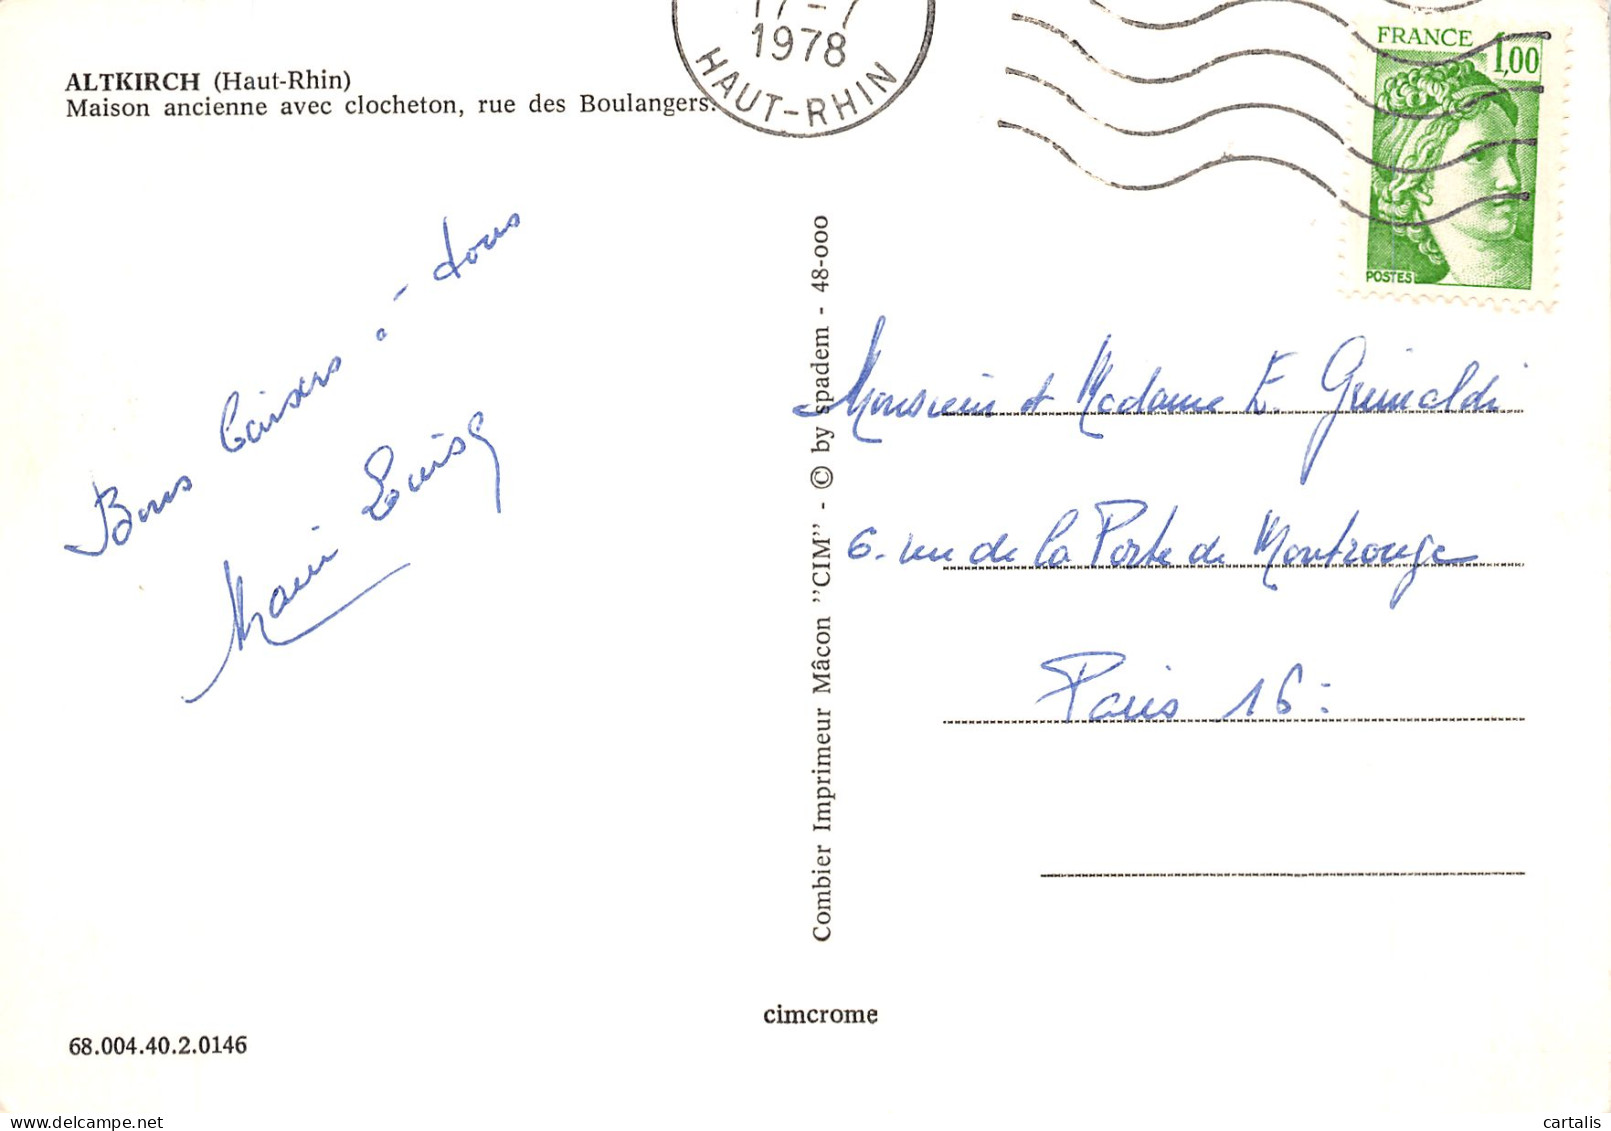 17-7
1978
HAUT-RHIN
FRANCE
1,00
POSTES
ALTKIRCH (Haut-Rhin)
Maison ancienne avec clocheton, rue des Boulangers.
Bons baisers à tous
Marie Louise
Combier Imprimeur Mâcon "CIM" - © by spadem - 48-000
Monsieur et Madame E. Grimaldi
6. rue de la Porte de Montrouge
Paris 16:
cimcrome
68.004.40.2.0146
delcampe.net
cartalis